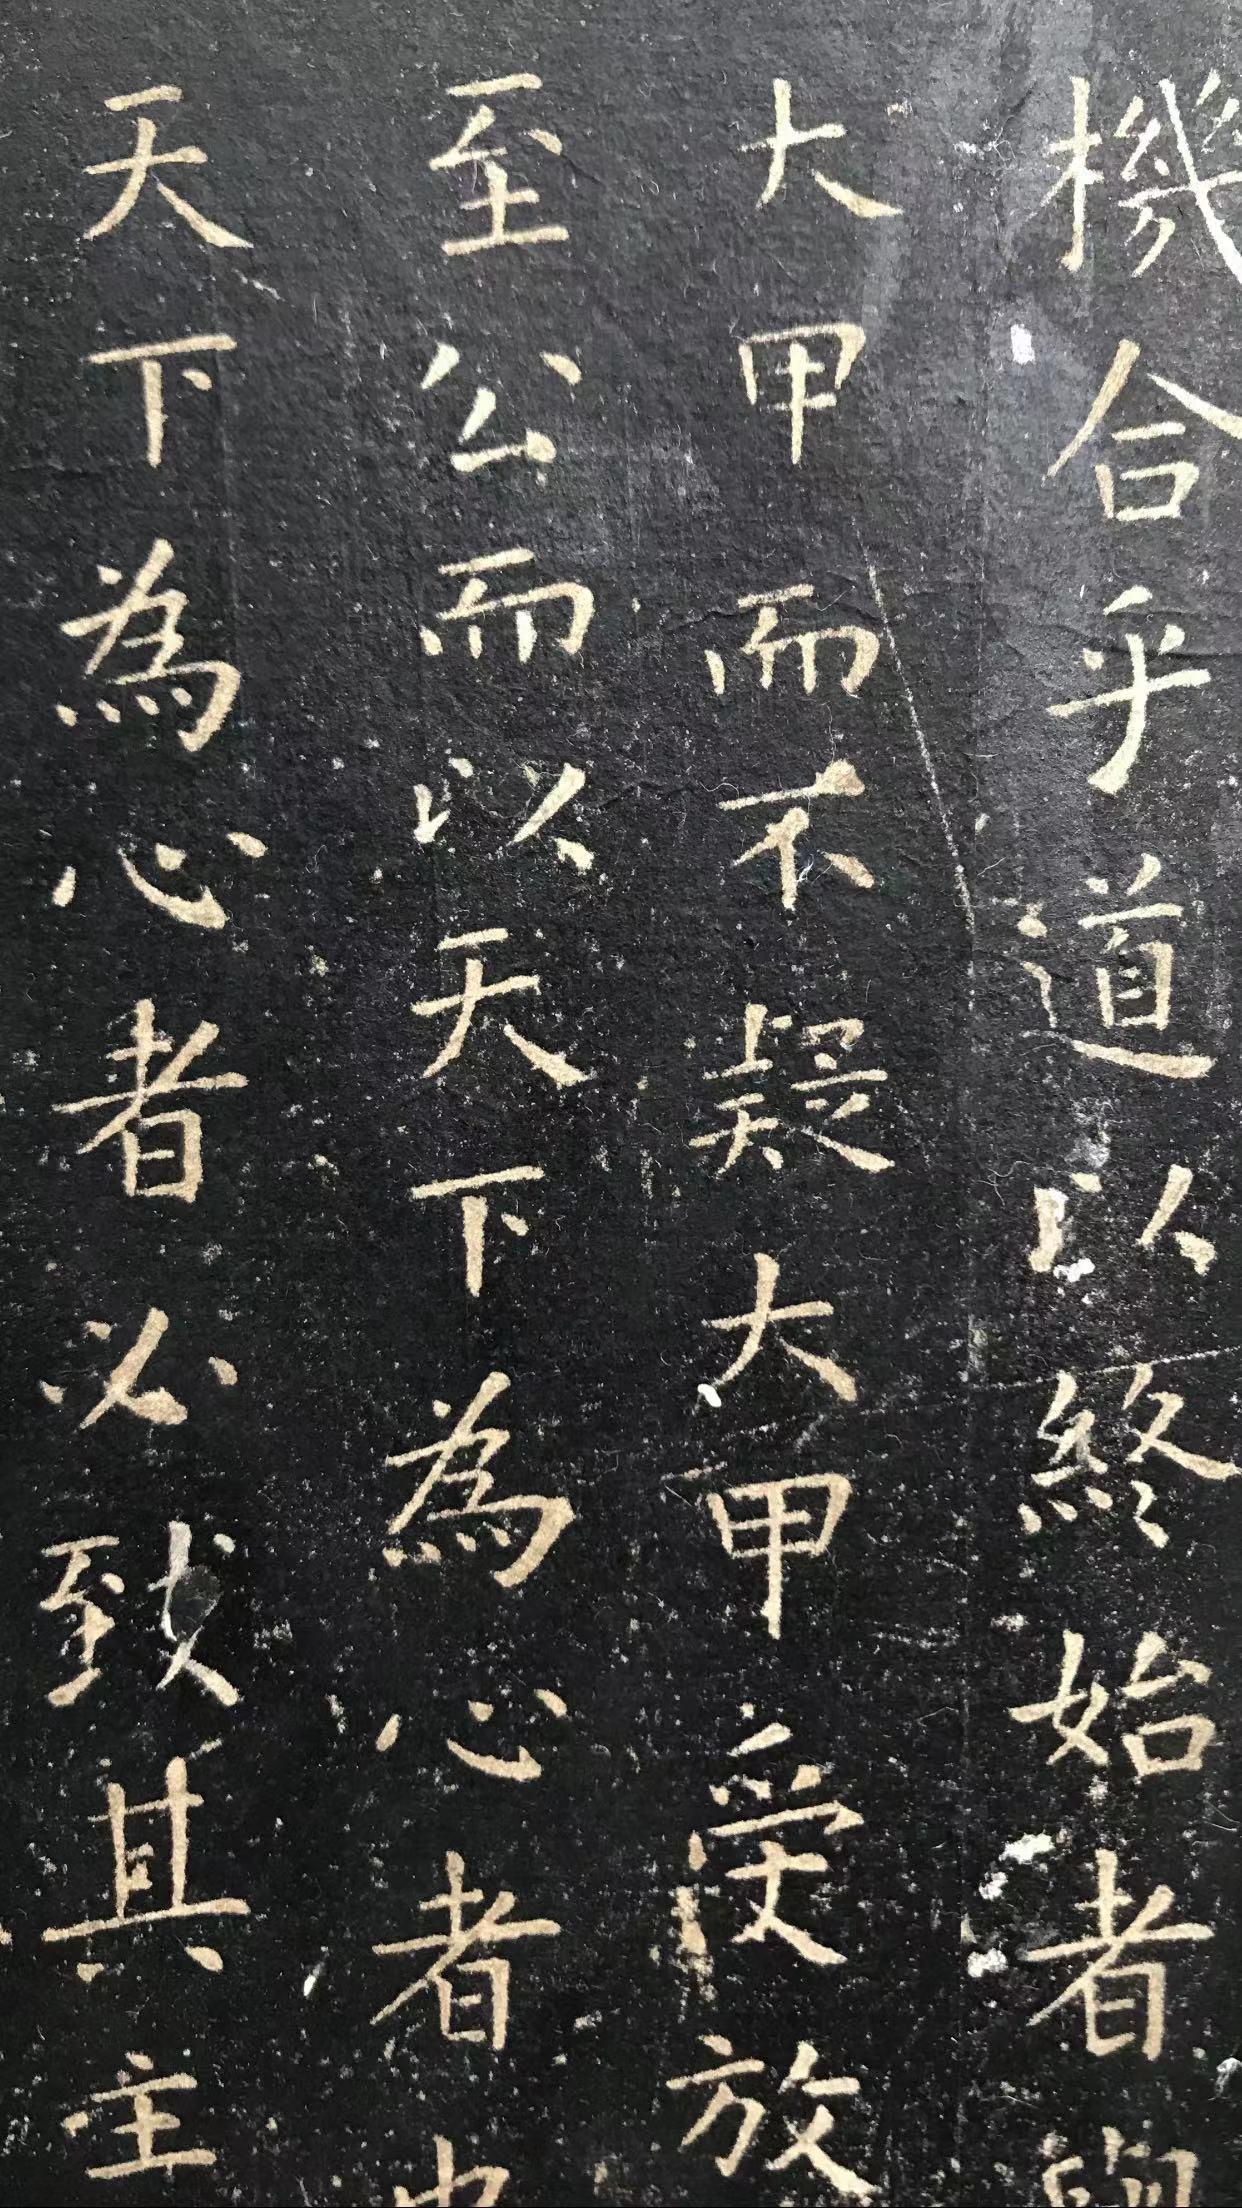 機合乎道以終始者與
大甲而不疑大甲受放
至公而以天下為心者也
天下為心者必致其主